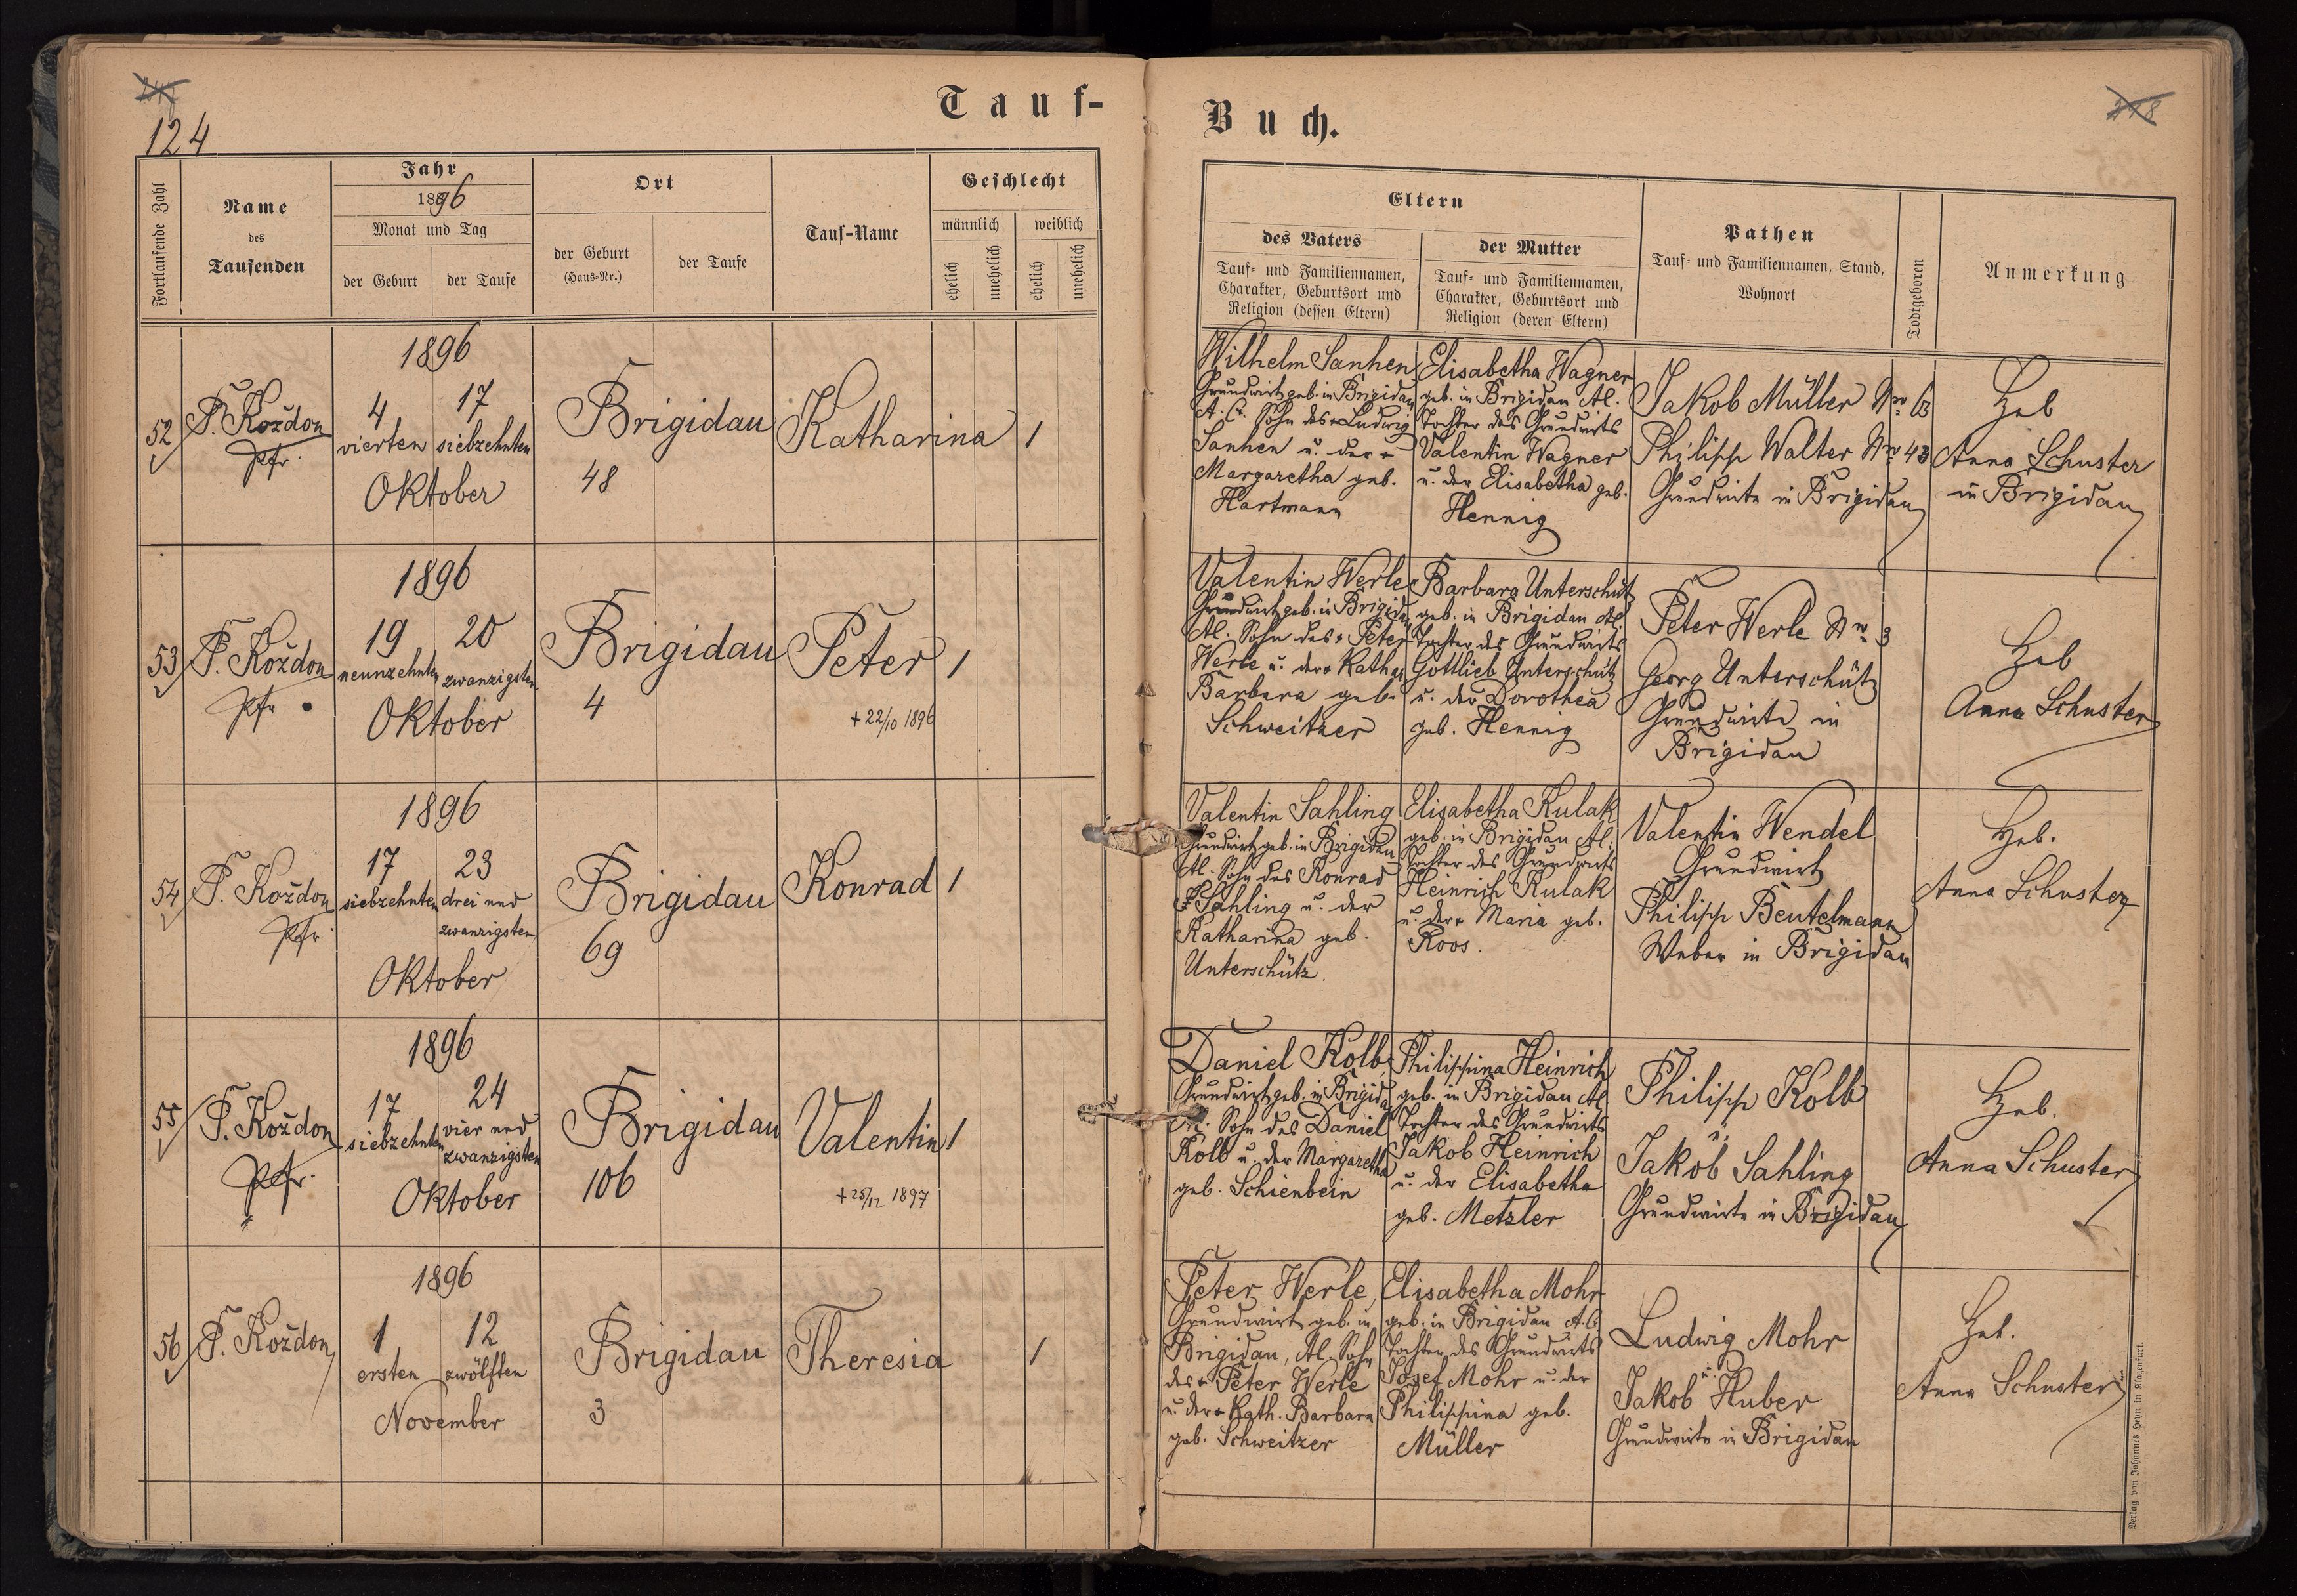 124
Tauf-
Fortlaufende Zahl
Name
des
Taufenden
Jahr
1896
Monat und Tag
der Geburt
der Taufe
Ort
der Geburt
(Haus-Nr.)
der Taufe
Tauf-Name
Geschlecht
männlich
weiblich
ehelich
unehelich
ehelich
unehelich
52
P. Koždon
Pfr.
1896
4 17
vierten siebzehnten
Oktober
Brigidau
48
Katharina
1
53
P. Koždon
Pfr
1896
19 20
neunzehnten zwanzigsten
Oktober
Brigidau
4
Peter
+ 22/10 1896
1
54
P. Koždon
Pfr
1896
17 23
siebzehnten drei und
zwanzigsten
Oktober
Brigidau
69
Konrad
1
55
P. Koždon
Pfr.
1896
17 24
siebzehnten vier und
zwanzigsten
Oktober
Brigidau
106
Valentin
+ 25/12 1897
1
56
P. Koždon
1896
1 12
ersten zwölften
November
Brigidau
3
Theresia
1
Buch.
Eltern
des Vaters
Tauf- und Familiennamen,
Charakter, Geburtsort und
Religion (dessen Eltern)
der Mutter
Tauf- und Familiennamen,
Charakter, Geburtsort und
Religion (deren Eltern)
Pathen
Tauf- und Familiennamen, Stand,
Wohnort
Todtgeboren
Anmerkung
Wilhelm Sanhen
Grundwirt geb. in Brigidau
A. C. Sohn des + Ludwig
Sanhen u. der +
Margaretha geb.
Hartmann
Elisabetha Wagner
geb. in Brigidau
Tochter des Grundwirts
Valentin Wagner
u. der Elisabetha geb.
Hennig
Jakob Müller Nro
Philipp Walter Nro 43
Grundwirte in Brigidau
Heb
Anna Schuster
in Brigidau
Valentin Werle
Grundwirt geb. in Brigidau
Sohn des + Peter
Werle u. der + Kathar
Barbara geb.
Schweitzer
Barbara Unterschütz
geb. in Brigidau
Tochter des Grundwirts
Gottlieb Unterschütz
u. der Dorothea
geb. Hennig
Peter Werle Nro 3
Georg Unterschütz
Grundwirte in
Brigidau
Heb
Anna Schuster
Valentin Sahling
Grundwirt geb. in Brigidau
Sohn des Konrad
Sahling u. der
Katharina geb.
Unterschütz.
Elisabetha Kulak
geb. in Brigidau
Tochter des Grundwirts
Heinrich Kulak
u. der + Maria geb.
Roos.
Valentin Wendel
Grundwirt
Philipp Beutelmann
Weber in Brigidau
Heb.
Anna Schuster
Daniel Kolb
Grundwirt geb. in Brigidau
Sohn des Daniel
Kolb u. der Margaretha
geb. Schienbein
Philippina Heinrich
geb. in Brigidau
Tochter des Grundwirts
Jakob Heinrich
u. der Elisabetha
geb. Metzler
Philipp Kolb
u.
Jakob Sahling
Grundwirte in Brigidau
Heb.
Anna Schuster
Peter Werle,
Grundwirt geb. in
Brigidau, Sohn
des + Peter Werle
u. der + Kath. Barbara
geb. Schweitzer
Elisabetha Mohr
geb. in Brigidau A. C.
Tochter des Grundwirts
Josef Mohr u. der
Philippina geb.
Müller
Ludwig Mohr
u.
Jakob Huber
Grundwirte in Brigidau
Heb.
Anna Schuster
Verlag von Johannes Heyn in Klagenfurt.